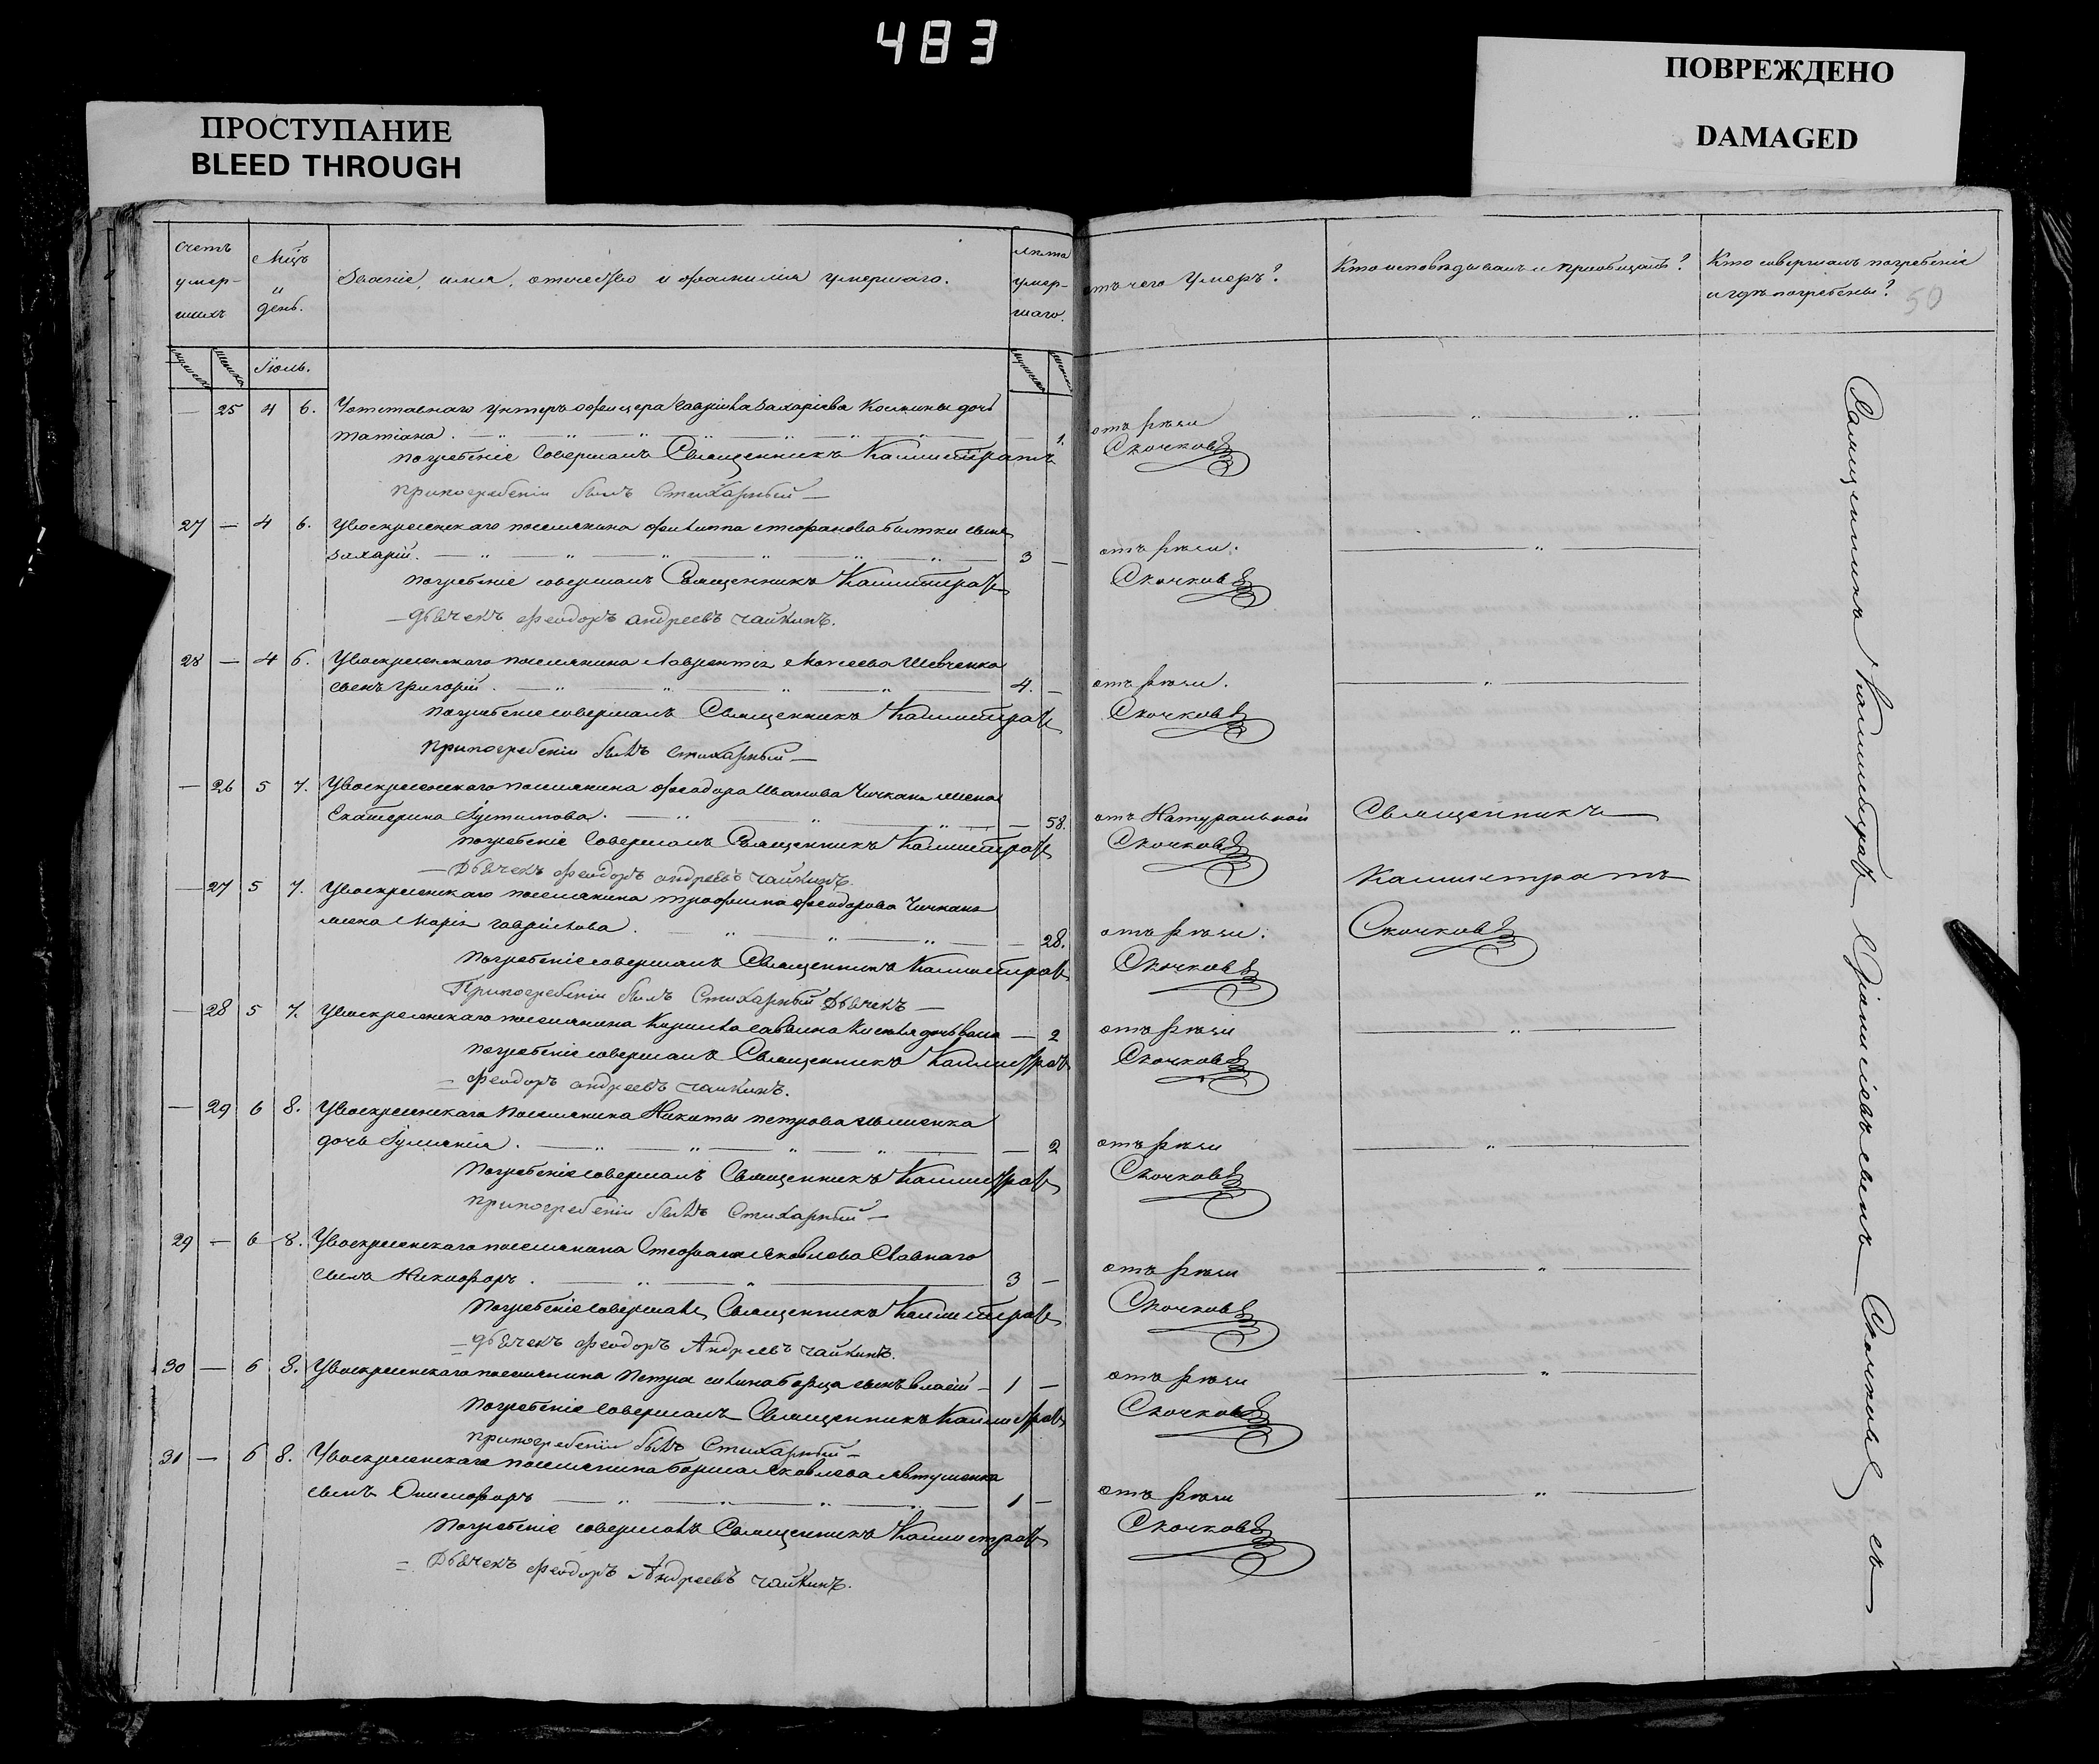 483
ПРОСТУПАНИЕ
BLEED THROUGH
ПОВРЕЖДЕНО
DAMAGED
счетъ умер-шихъ
Мцъ и день.
Званіе, имя, отчество и фамилія умершаго.
лѣта умер-шаго.
отъ чего умеръ?
Кто исповѣдывалъ и пріобщалъ?
Кто совершалъ погребеніе
и гдѣ погребены?
50
Іюль.
— 25 4 6. Уотставнаго унтеръ офицера Гавріила Захаріева дочь
татіана. — 1. отъ
погребеніе совершалъ Священникъ Каллистратъ Скочковъ
припогребеніи былъ Стихарный —
27 — 4 6. Увоскресенскаго поселянина филиппа стефанова сынъ
захарій. 3 — отъ
погребеніе совершалъ Священникъ Каллистратъ Скочковъ
— Дьячекъ феодоръ андреевъ чайкинъ.
28 — 4 6. Увоскресенскаго поселянина лаврентія Моисеева Шевченка
сынъ григорій. 4. — отъ
погребеніе совершалъ Священникъ Каллистратъ Скочковъ
припогребеніи былъ стихарный —
— 26 5 7. Увоскресенскаго поселянина феодора Иванова жена
Екатерина Іустинова. — 58. отъ Натуральной Священникъ
погребеніе совершалъ Священникъ Каллистратъ Скочковъ
— Дьячекъ феодоръ андреевъ чайкинъ. Каллистратъ
— 27 5 7. Увоскресенскаго поселянина трофима феодорова
жена Марія гавріилова. — 28. отъ Скочковъ
погребеніе совершалъ Священникъ Каллистратъ Скочковъ
Припогребеніи былъ Стихарный Дьячекъ —
— 28 5 7. Увоскресенскаго поселянина Кирила саввина дочь — 2 отъ
погребеніе совершалъ Священникъ Каллистратъ Скочковъ
= феодоръ андреевъ чайкинъ.
— 29 6 8. Увоскресенскаго поселянина Никиты петрова
дочь Іулианія. — 2 отъ
погребеніе совершалъ Священникъ Каллистратъ Скочковъ
припогребеніи былъ Стихарный —
29 — 6 8. Увоскресенскаго поселянина Стефана Яковлева Славнаго
сынъ Никифоръ. 3 — отъ
погребеніе совершалъ Священникъ Каллистратъ Скочковъ
= Дьячекъ феодоръ Андреевъ чайкинъ.
30 — 6 8. Увоскресенскаго поселянина петра сынъ власій — 1 — отъ
погребеніе совершалъ Священникъ Каллистратъ Скочковъ
припогребеніи былъ Стихарный —
31 — 6 8. Увоскресенскаго поселянина бориса Яковлева Явтушенка
сынъ Онисифоръ — 1 — отъ
погребеніе совершалъ Священникъ Каллистратъ Скочковъ
= Дьячекъ феодоръ Андреевъ чайкинъ.
Священникъ Каллистратъ сынъ Скочковъ съ